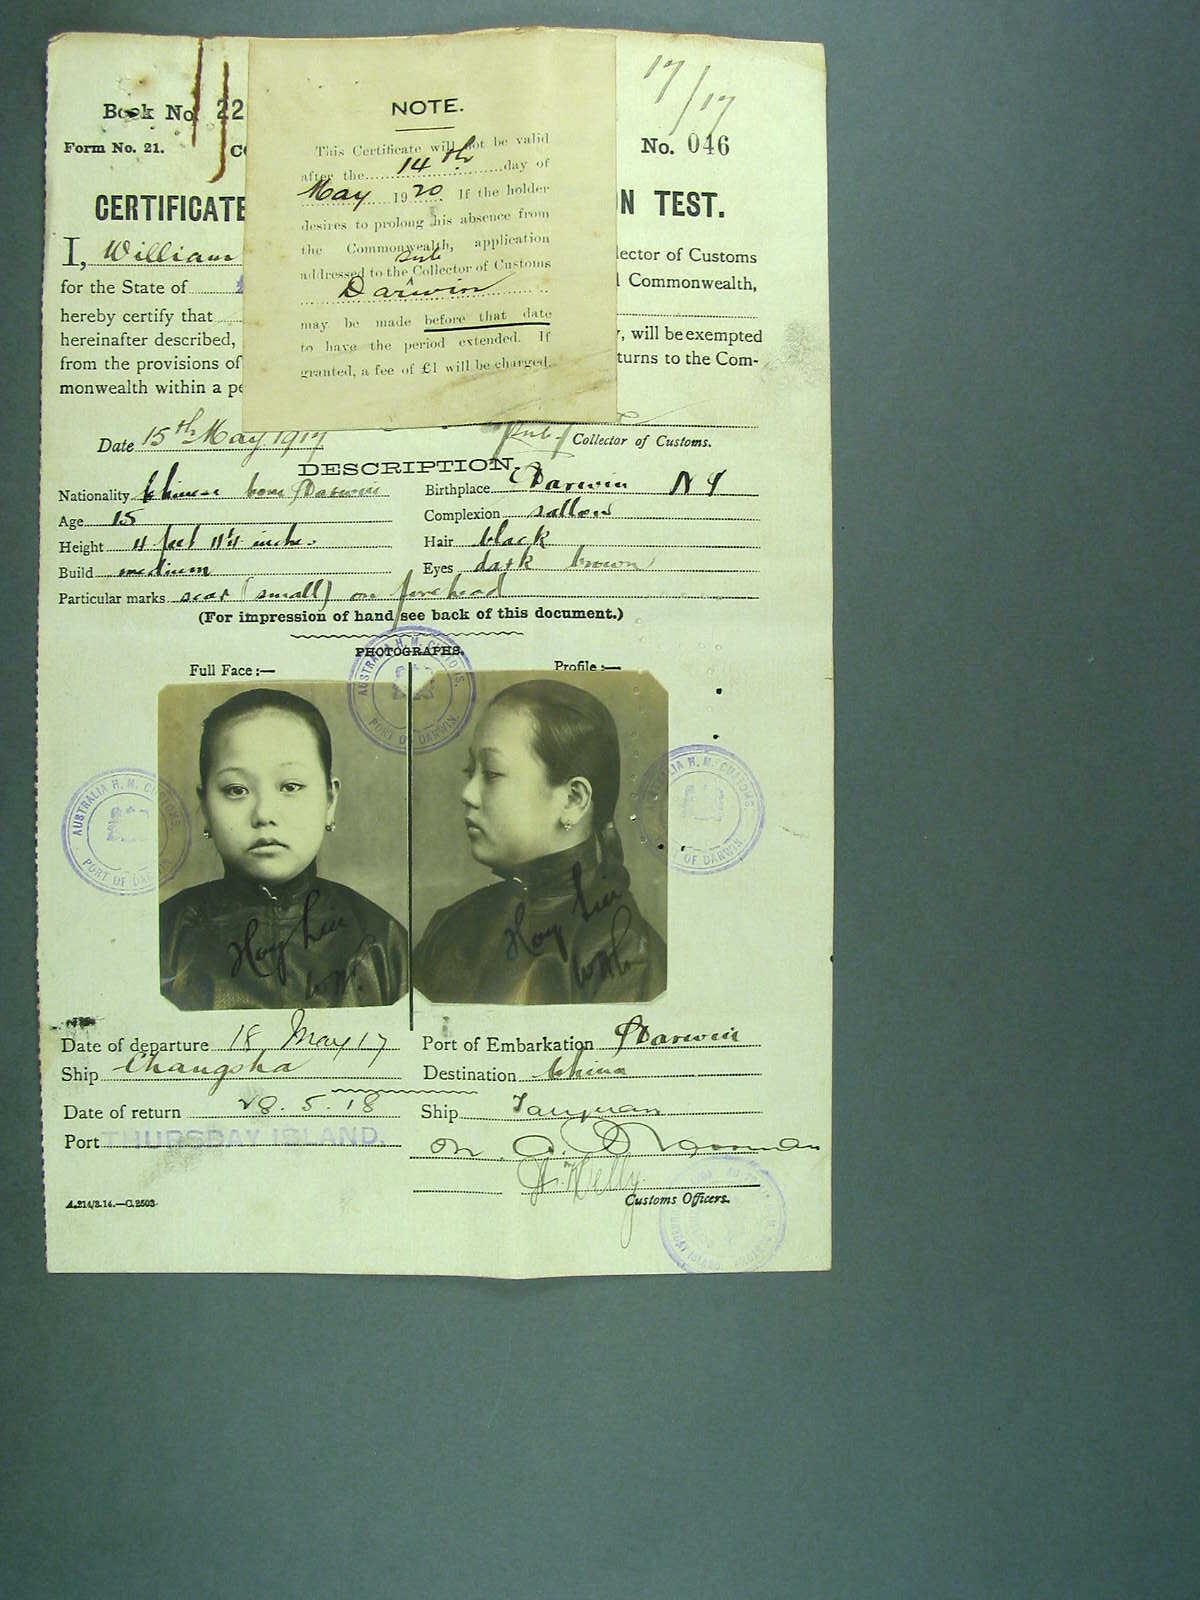 17/17
Book No 22
NOTE.
Form No. 21.
No. 046
This Certificate will not be valid
after the 14th day of
May 1920. If the holder
CERTIFICATE
N TEST.
desires to prolong his absence from
the Commonwealth, application
I, William
lector of Customs
sub
addressed to the Collector of Customs
for the State of
Commonwealth,
Darwin
hereby certify that
may be made before that date
hereinafter described,
, will be exempted
to have the period extended. If
from the provisions of
turns to the Com-
granted, a fee of £1 will be charged.
monwealth within a pe
Date 15th May 1917
Sub. Collector of Customs.
DESCRIPTION.
Nationality Chinese born Darwin
Birthplace Darwin NT
Age 15
Complexion sallow
Height 4 feet 11¼ inches
Hair black
Build medium
Eyes dark brown
Particular marks scar (small) on forehead
(For impression of hand see back of this document.)
PHOTOGRAPHS.
Full Face:—
Profile:—
AUSTRALIA H. M. CUSTOMS.
PORT OF DARWIN
AUSTRALIA H. M. CUSTOMS.
PORT OF DARWIN
AUSTRALIA H. M. CUSTOMS.
PORT OF DARWIN
Hoy
Hoy
Date of departure 18 May 17
Port of Embarkation Darwin
Ship Changsha
Destination China
Date of return 28.5.18
Ship Taiyuan
Port THURSDAY ISLAND.
Customs Officers.
A.214/3.14.—C.2503.